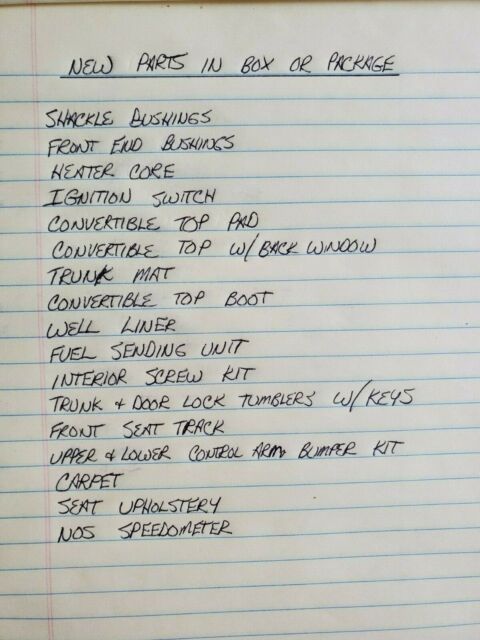 NEW PARTS IN BOX OR PACKAGE
SHACKLE BUSHINGS
FRONT END BUSHINGS
HEATER CORE
IGNITION SWITCH
CONVERTIBLE TOP PAD
CONVERTIBLE TOP W/BACK WINDOW
TRUNK MAT
CONVERTIBLE TOP BOOT
WELL LINER
FUEL SENDING UNIT
INTERIOR SCREW KIT
TRUNK & DOOR LOCK TUMBLERS W/KEYS
FRONT SEAT TRACK
UPPER & LOWER CONTROL ARM BUMPER KIT
CARPET
SEAT UPHOLSTERY
NOS SPEEDOMETER